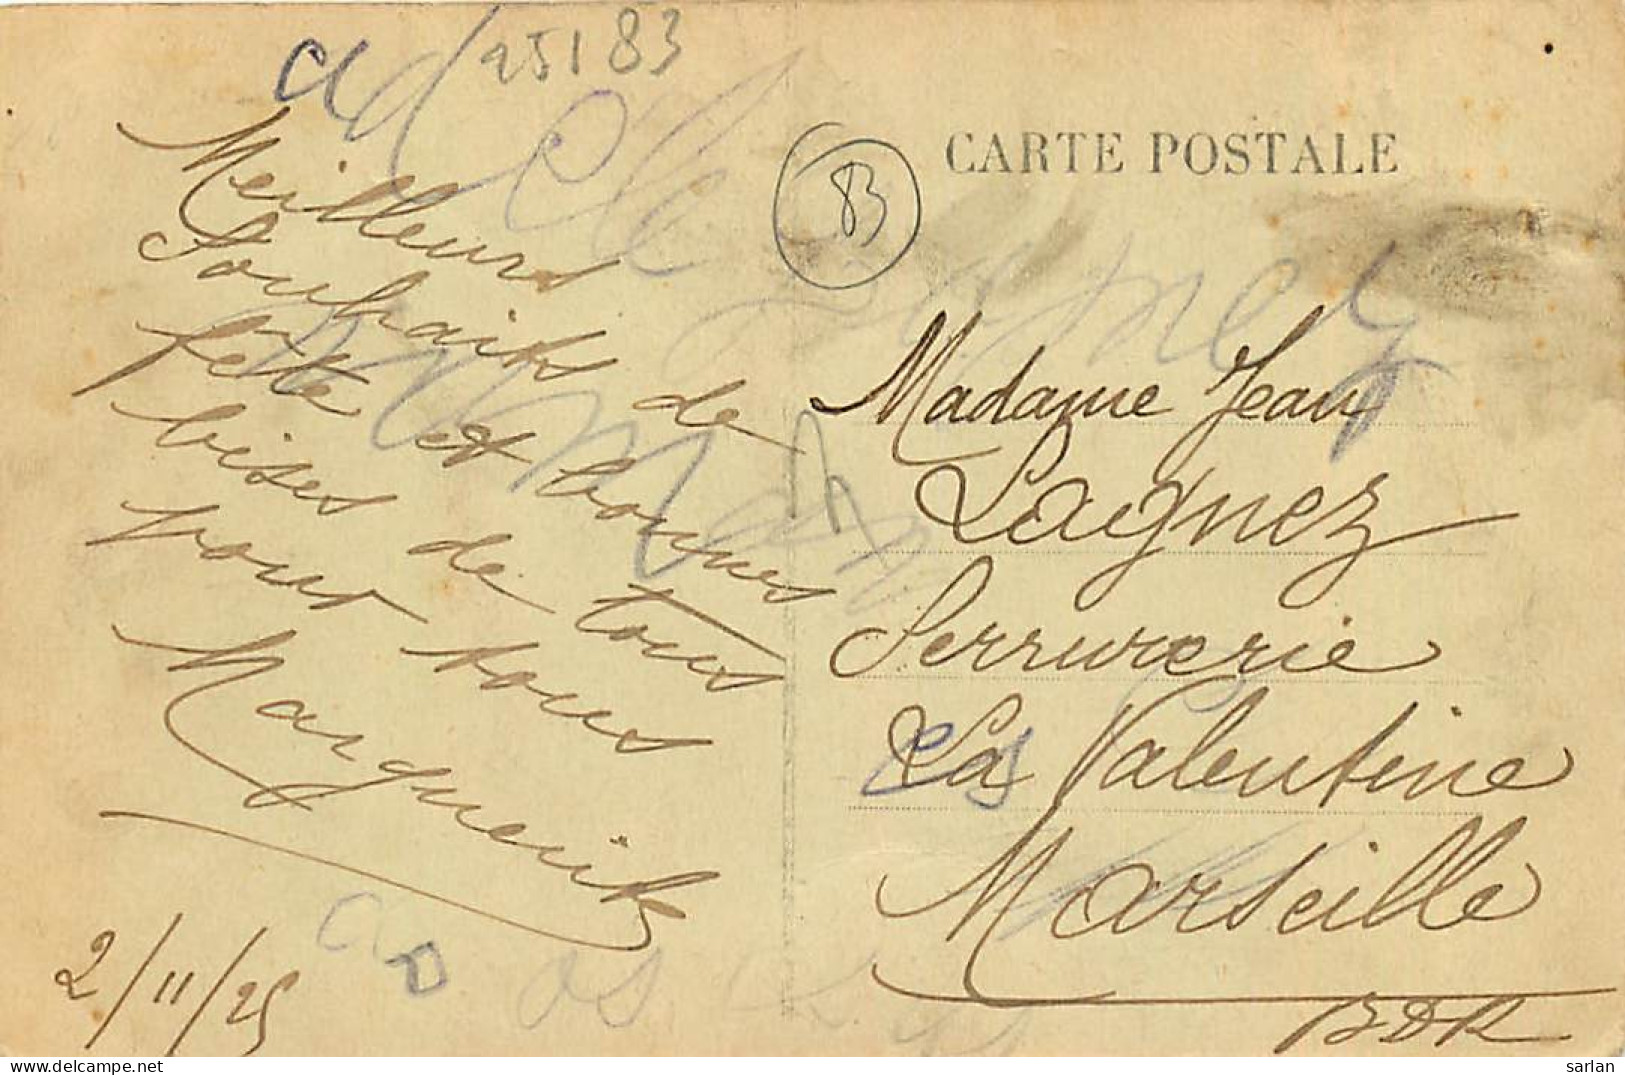 25183
83
CARTE POSTALE
Meilleurs
Souhaits de
fête et bonnes
bises de tous
pour tous
Marguerite
2/11/25
Madame Jean
Lagnez
Serrurerie
La Valentine
Marseille
BDR
sarlan